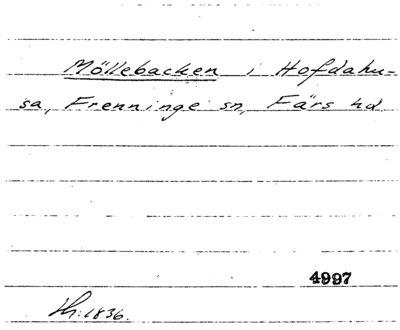 Möllebacken i Hofdahu-
sa, Frenninge sn, Färs hd
4997
Lh: 1836.